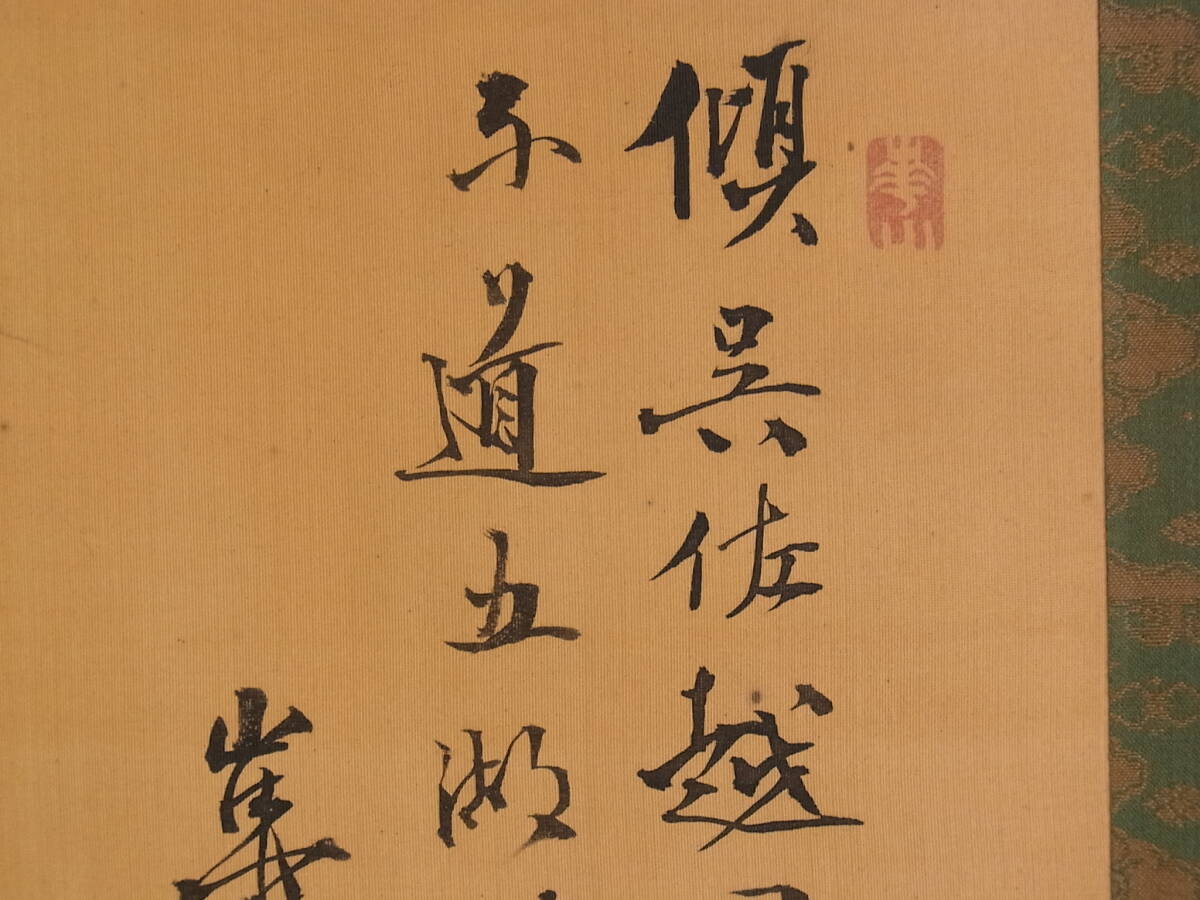 傾呉佐越
不道五湖